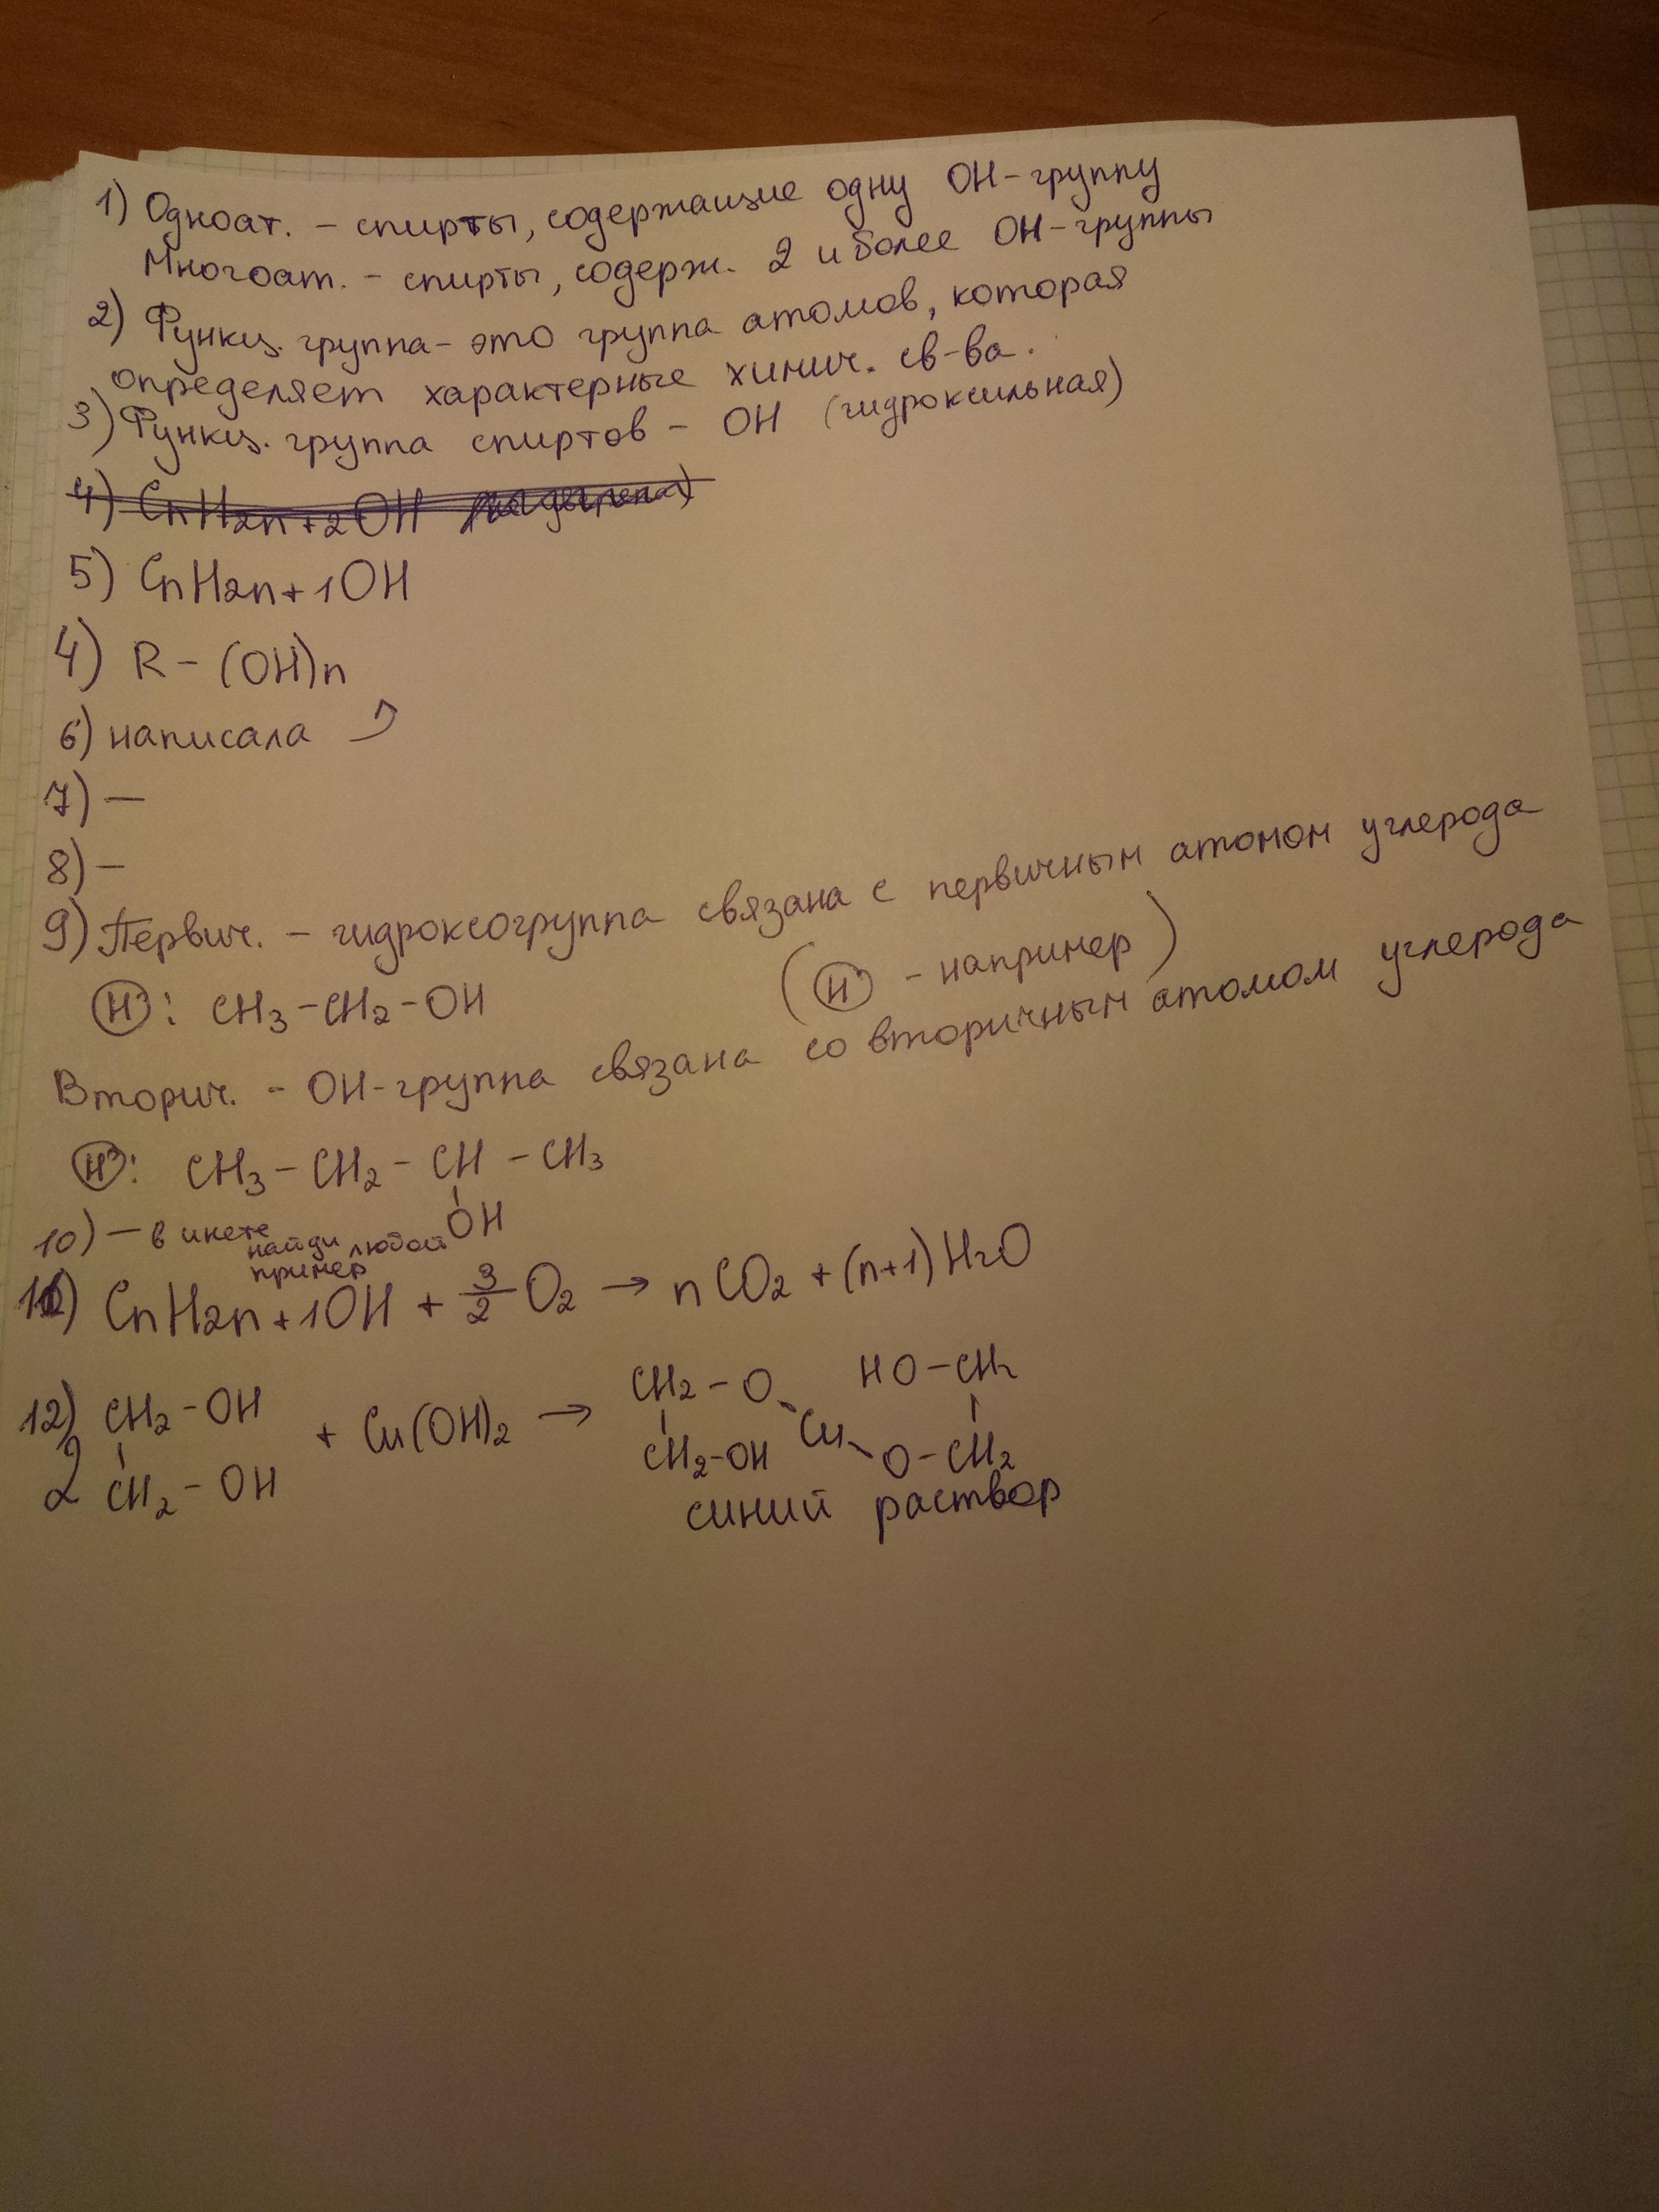 1) Одноат. – спирты, содержащие одну OH-группу
Многоат. – спирты, содерж. 2 и более OH-группы
2) Функц. группа – это группа атомов, которая
определяет характерные химич. св-ва.
3) Функц. группа спиртов – OH (гидроксильная)
4) CnH2n+2OH
5) CnH2n+1OH
4) R – (OH)n
6) написала
7) —
8) –
9) Первич. – гидроксогруппа связана с первичным атомом углерода
Н: CH3–CH2–OH (Н – например)
Вторич. – OH-группа связана со вторичным атомом углерода
Н: CH3–CH2–CH–CH3
OH
10) – в инете
найди любой
пример
11) CnH2n+1OH + 3/2 O2 → nCO2 + (n+1)H2O
12) CH2–OH + Cu(OH)2 → CH2–O HO–CH2
2 CH2–OH CH2–OH Cu O–CH2
синий раствор